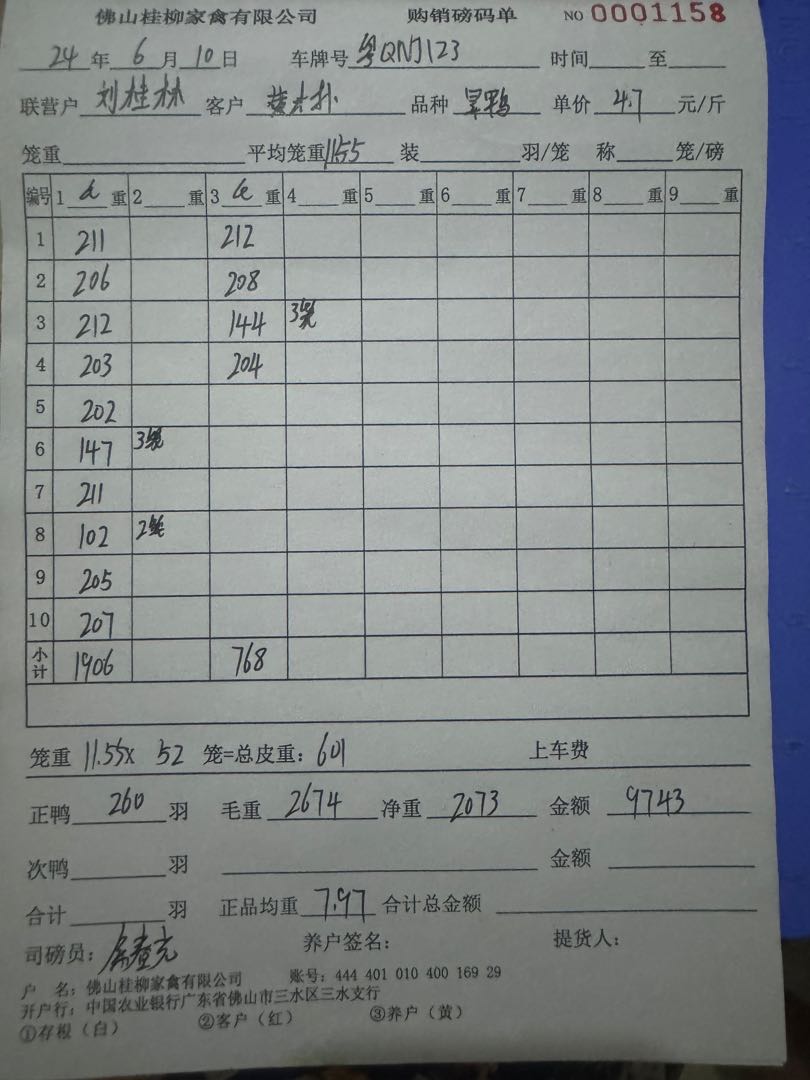 佛山桂柳家禽有限公司 购销磅码单 NO 0001158
24 年 6 月 10 日 车牌号 粤QNJ123 时间 至
联营户 刘桂林 客户 品种 旱鸭 单价 4.7 元/斤
笼重 平均笼重 11.55 装 羽/笼 称 笼/磅
编号 1 重 2 重 3 重 4 重 5 重 6 重 7 重 8 重 9 重
1 211 212
2 206 208
3 212 144 3笼
4 203 204
5 202
6 147 3笼
7 211
8 102 2笼
9 205
10 207
小计 1906 768
笼重 11.55x 52 笼=总皮重: 601 上车费
正鸭 260 羽 毛重 2674 净重 2073 金额 9743
次鸭 羽 金额
合计 羽 正品均重 7.97 合计总金额
司磅员: 养户签名: 提货人:
户 名: 佛山桂柳家禽有限公司 账号: 444 401 010 400 169 29
开户行: 中国农业银行广东省佛山市三水区三水支行
①存根(白) ②客户(红) ③养户(黄)